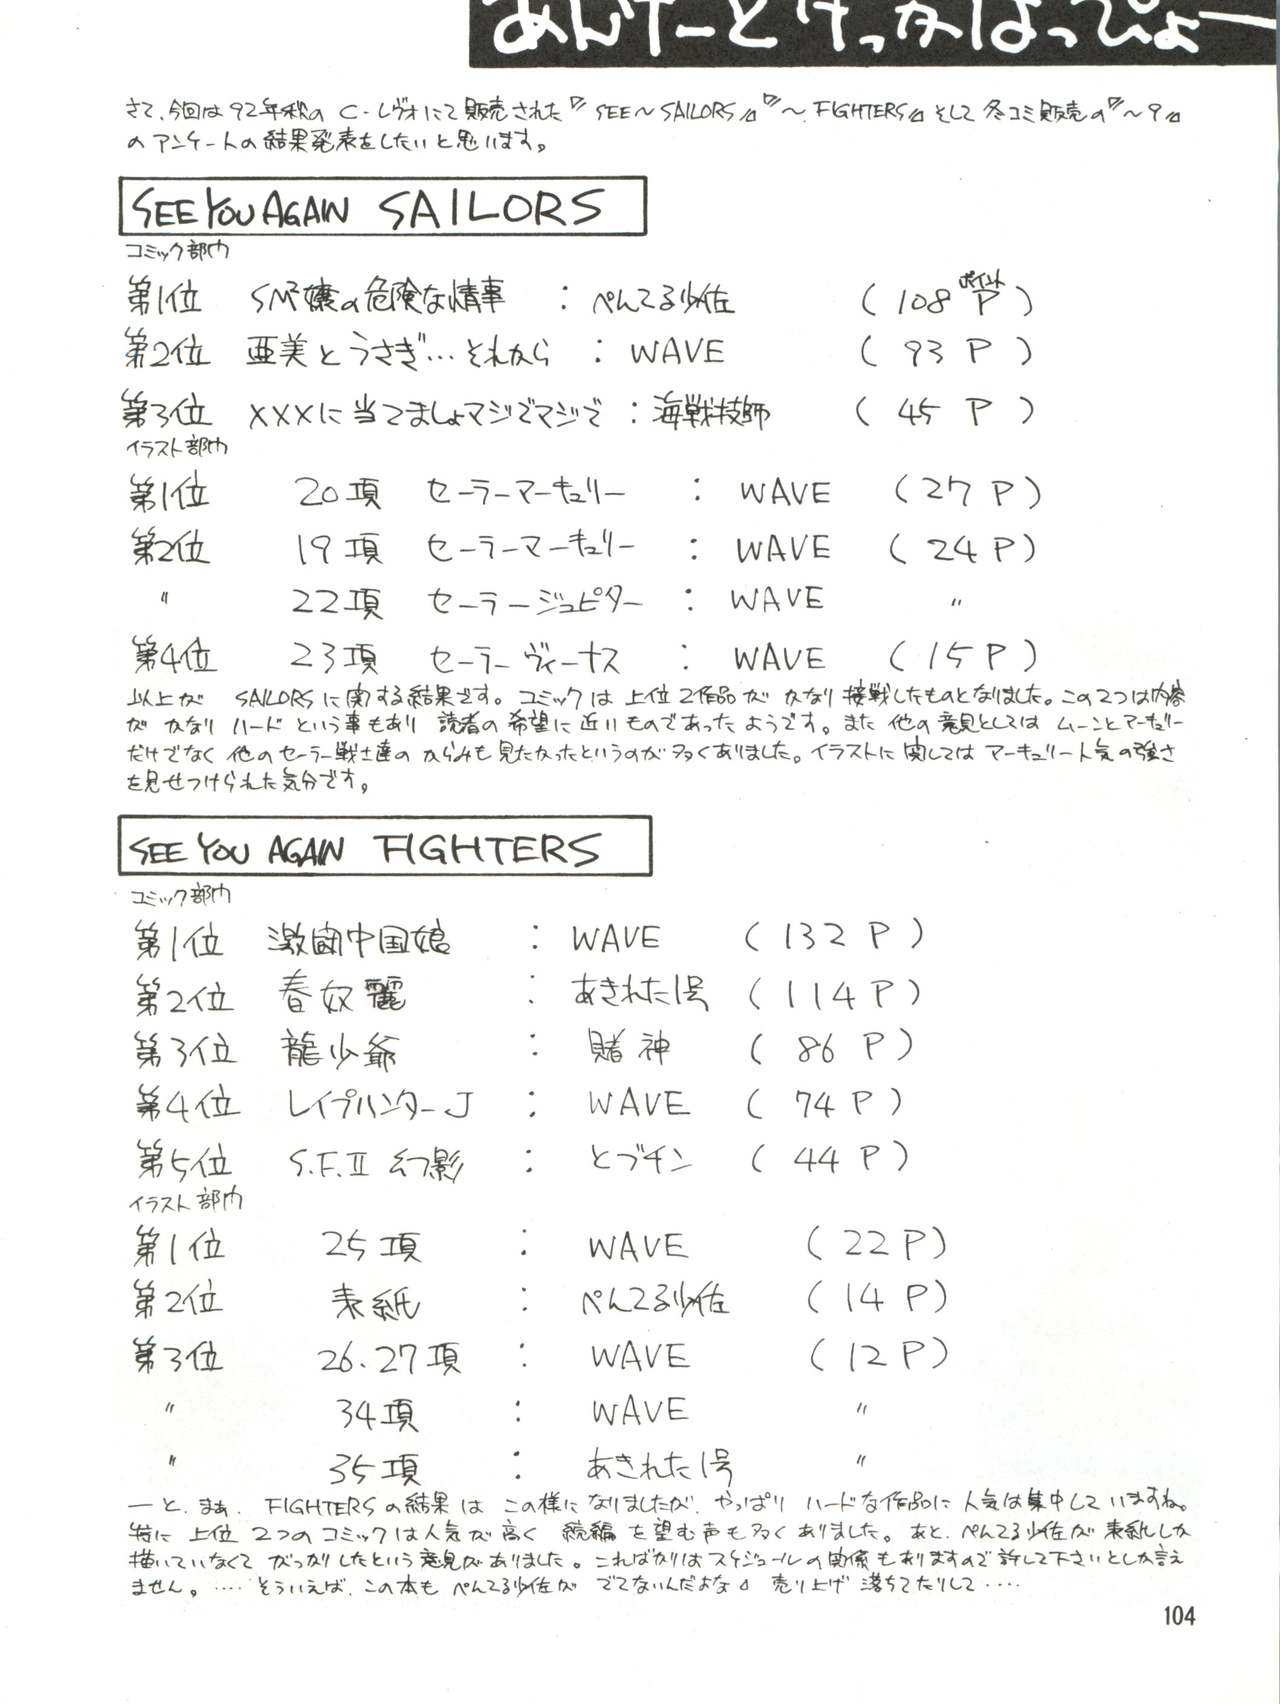 あんけーとけっかはっぴょー
さて、今回は92年秋のC・レヴォにて販売された『SEE～SAILORS』『～FIGHTERS』そして冬コミ販売の『～9』
のアンケートの結果発表をしたいと思います。
SEE YOU AGAIN SAILORS
コミック部门
第1位 SM嬢の危険な情事 : ぺんてる少佐 (108P)
ポイント
第2位 亜美とうさぎ…それから : WAVE (93P)
第3位 XXXに当てましょマジでマジで : 海戦技師 (45P)
イラスト部门
第1位 20項 セーラーマーキュリー : WAVE (27P)
第2位 19項 セーラーマーキュリー : WAVE (24P)
〃 22項 セーラージュピター : WAVE 〃
第4位 23項 セーラーヴィーナス : WAVE (15P)
以上が SAILORSに関する結果です。コミックは上位2作品が かなり接戦したものとなりました。この2つは内容
が かなり ハード という事もあり 読者の希望に近いものであったようです。また 他の意見としては ムーンとマーキュリー
だけでなく 他のセーラー戦士達の からみも見たかったというのが多くありました。イラストに関しては マーキュリー人気の強さ
を見せつけられた気分です。
SEE YOU AGAIN FIGHTERS
コミック部门
第1位 激闘中国娘 : WAVE (132P)
第2位 春奴麗 : あきれた1号 (114P)
第3位 龍少爺 : 賭神 (86P)
第4位 レイプハンターJ : WAVE (74P)
第5位 S.F.II 幻影 : とブチン (44P)
イラスト部门
第1位 25項 : WAVE (22P)
第2位 表紙 : ぺんてる少佐 (14P)
第3位 26.27項 : WAVE (12P)
〃 34項 : WAVE 〃
〃 35項 : あきれた1号 〃
―と、まぁ、FIGHTERSの結果は この様になりましたが、やっぱり ハードな作品に人気は集中していますね。
特に 上位 2つのコミックは人気が高く 続編を望む声も多くありました。あと、ぺんてる少佐が 表紙しか
描いていなくて がっかりしたという意見がありました。こればかりはスケジュールの関係もありますので許して下さいとしか言え
ません。…… そういえば、この本も ぺんてる少佐が でてないんだよな 売り上げ 落ちてたりして……
104